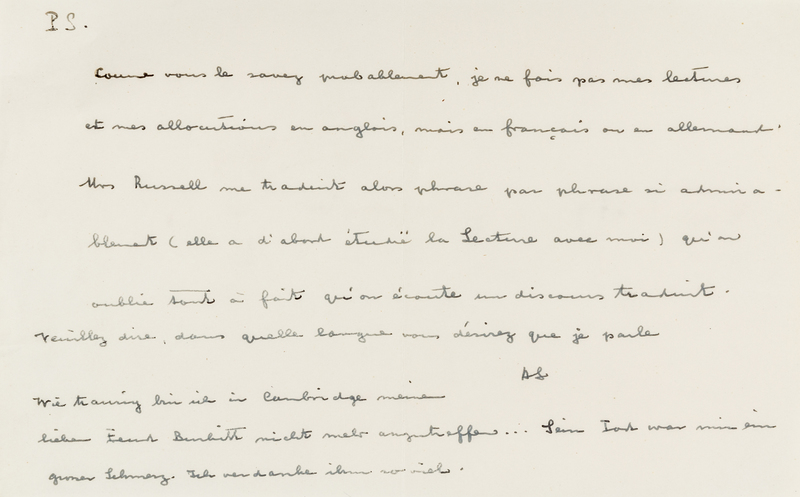 P.S.
Comme vous le savez probablement, je ne fais pas mes lectures
et mes allocutions en anglais, mais en français ou en allemand.
Mrs Russell me traduit alors phrase par phrase si admira-
blement (elle a d'abord étudié la Lecture avec moi) qu'on
oublie tout à fait qu'on écoute un discours traduit.
Veuillez dire, dans quelle langue vous désirez que je parle
AS
Wie traurig bin ich in Cambridge meinen
lieben Freund Burkitt nicht mehr anzutreffen... Sein Tod war mir ein
grosser Schmerz. Ich verdanke ihm so viel.